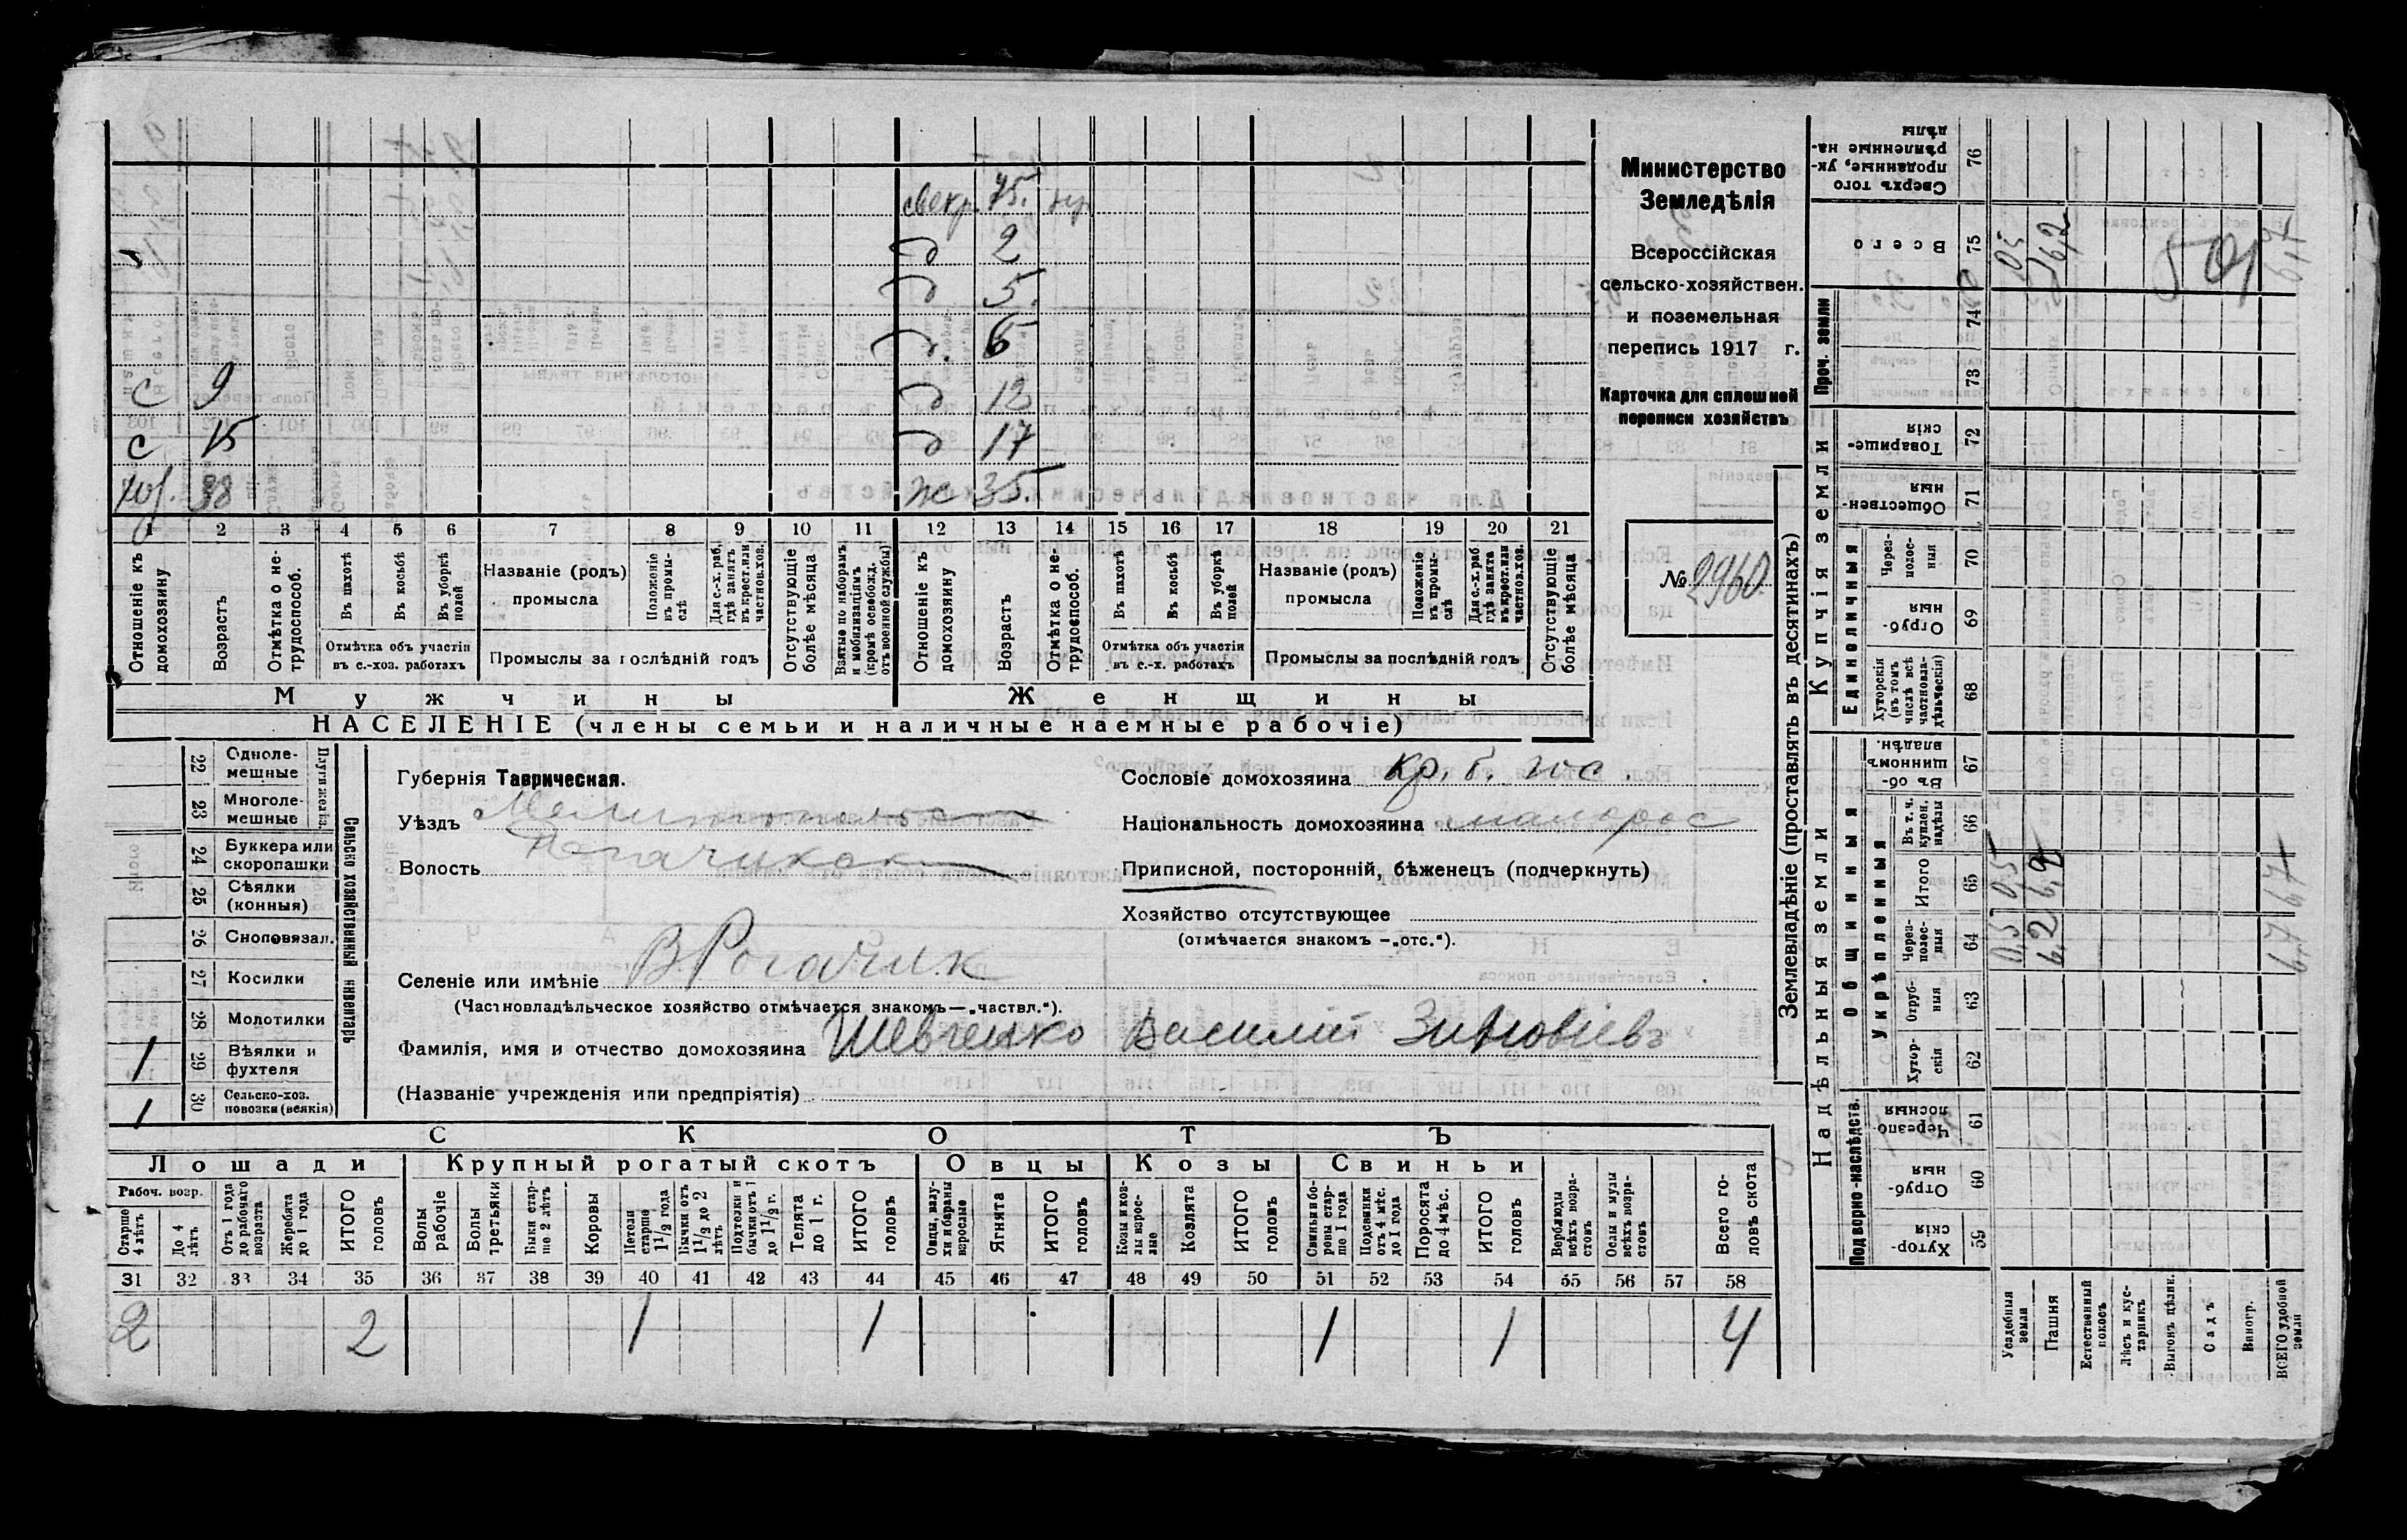 свекр. 75. нр
д 2
д 5.
д. 6
с 9 д 12
с 15 д 17
хоз. 38 ж 35.
1 2 3 4 5 6 7 8 9 10 11 12 13 14 15 16 17 18 19 20 21
Отношеніе къ домохозяину
Возрастъ
Отмѣтка о нетрудоспособ.
Въ пахотѣ
Въ косьбѣ
Въ уборкѣ полей
Отмѣтка объ участіи
въ с.-хоз. работахъ
Названіе (родъ)
промысла
Положеніе въ промыслѣ
Для с.-х. раб. гдѣ занятъ въ крест. или частнов. хоз.
Промыслы за послѣдній годъ
Отсутствующіе болѣе мѣсяца
Взятые по наборамъ и мобилизаціямъ (кромѣ освобожд. отъ военной службы)
Отношеніе къ домохозяину
Возрастъ
Отмѣтка о нетрудоспособ.
Въ пахотѣ
Въ косьбѣ
Въ уборкѣ полей
Отмѣтка объ участіи
въ с.-х. работахъ
Названіе (родъ)
промысла
Положеніе въ промыслѣ
Для с.-х. раб гдѣ занята въ крест. или частнов. хоз.
Промыслы за послѣдній годъ
Отсутствующіе болѣе мѣсяца
Мужчины Женщины
НАСЕЛЕНІЕ (члены семьи и наличные наемные рабочіе)
Министерство
Земледѣлія
Всероссійская
сельско-хозяйствен.
и поземельная
перепись 1917 г.
Карточка для сплошной
переписи хозяйствъ
№ 2960
22 Однолемешные
23 Многолемешные
Плуги желѣз.
24 Буккера или скоропашки
25 Сѣялки (конныя)
26 Сноповязал.
27 Косилки
28 Молотилки
1 29 Вѣялки и фухтеля
1 30 Сельско-хоз. повозки (всякія)
Сельско хозяйственный инвентарь
Губернія Таврическая.
Уѣздъ Мелитопольск
Волость
Селеніе или имѣніе В Рогачик
(Частновладѣльческое хозяйство отмѣчается знакомъ—„частвл.“).
Фамилія, имя и отчество домохозяина Шевченко Василий Зиновіевъ
(Названіе учрежденія или предпріятія)
Сословіе домохозяина кр. б. гос.
Національность домохозяина малорос
Приписной, посторонній, бѣженецъ (подчеркнуть)
Хозяйство отсутствующее
(отмѣчается знакомъ —„отс.“).
СКОТЪ
Лошади Крупный рогатый скотъ Овцы Козы Свиньи
Рабоч. возр.
Старше 4 лѣтъ
До 4 лѣтъ
Отъ 1 года до рабочаго возраста
Жеребята до 1 года
ИТОГО головъ
Волы рабочіе
Волы третьяки
Быки старше 2 лѣтъ
Коровы
Нетели старше 1 1/2 года
Бычки отъ 1 1/2 до 2 лѣтъ
Подтелки и бычки отъ 1 до 1 1/2 г.
Телята до 1 г.
ИТОГО головъ
Овцы, валухи и бараны взрослые
Ягнята
ИТОГО головъ
Козы и козлы взрослые
Козлята
ИТОГО головъ
Свиньи и боровы старше 1 года
Подсвинки отъ 4 мѣс. до 1 года
Поросята до 4 мѣс.
ИТОГО головъ
Верблюды всѣхъ возрастовъ
Ослы и мулы всѣхъ возрастовъ
Всего головъ скота
31 32 33 34 35 36 37 38 39 40 41 42 43 44 45 46 47 48 49 50 51 52 53 54 55 56 57 58
2 2 1 1 1 1 4
Землевладѣніе (проставлять въ десятинахъ)
Надѣльныя земли
Купчія земли
Подворно-наслѣдств.
Общинныя
Укрѣпленныя
Единоличныя
Проч. земли
59 Хуторскія
60 Отрубныя
61 Черезполосныя
62 Хуторскія
63 Отрубныя
64 Черезполосныя
65 Итого
66 Въ т. ч. куплен. надѣлы
67 Въ общинномъ владѣн.
68 Хуторскія (въ томъ числѣ всѣ частновладѣльческія)
69 Отрубныя
70 Черезполосныя
71 Общественныя
72 Товарищескія
73
74
75 Всего
76 Сверхъ того проданные, укрѣпленные надѣлы
Усадебныя земли 0,5 05 05
Пашня 6,2 6,2 6,2
Естественный покосъ
Лѣсъ и кустарникъ
Выгонъ цѣлин.
Садъ
Виногр.
ВСЕГО удобной земли 6,7 6,7 6,7